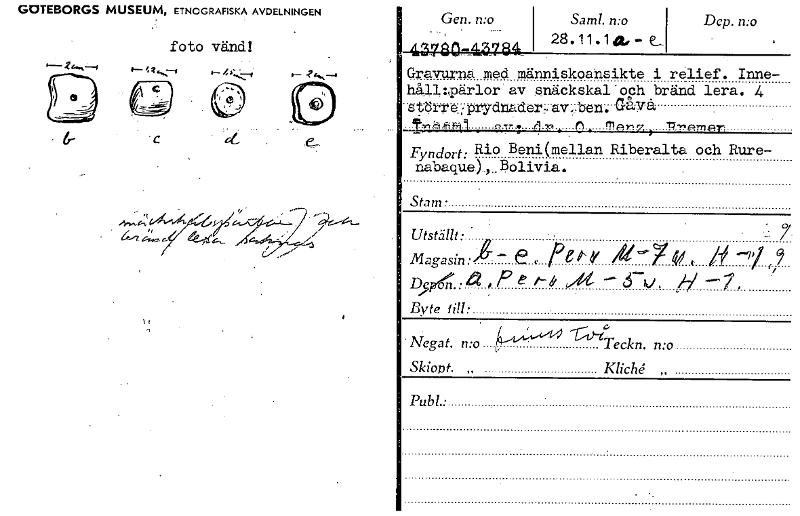 GÖTEBORGS MUSEUM, ETNOGRAFISKA AVDELNINGEN
foto vänd!
2cm
1,2cm
1,5
2cm
b
c
d
e
Gen. n:o
Saml. n:o
Dep. n:o
43780-43784
28.11.1a-e
Gravurna med människoansikte i relief. Inne-
håll:pärlor av snäckskal och bränd lera. 4
större prydnader av ben. Gåva
Insaml. av: dr. O. Tenz, Bremen
Fyndort: Rio Beni(mellan Riberalta och Rure-
nabaque), Bolivia.
Stam:
Utställt: 9
Magasin: b-e. Peru M-7 v. H-1, 9
Depon.: a. Peru M-5 v. H-7.
Byte till:
Negat. n:o finns två Teckn. n:o
Skiopt. „ Kliché „
Publ.: